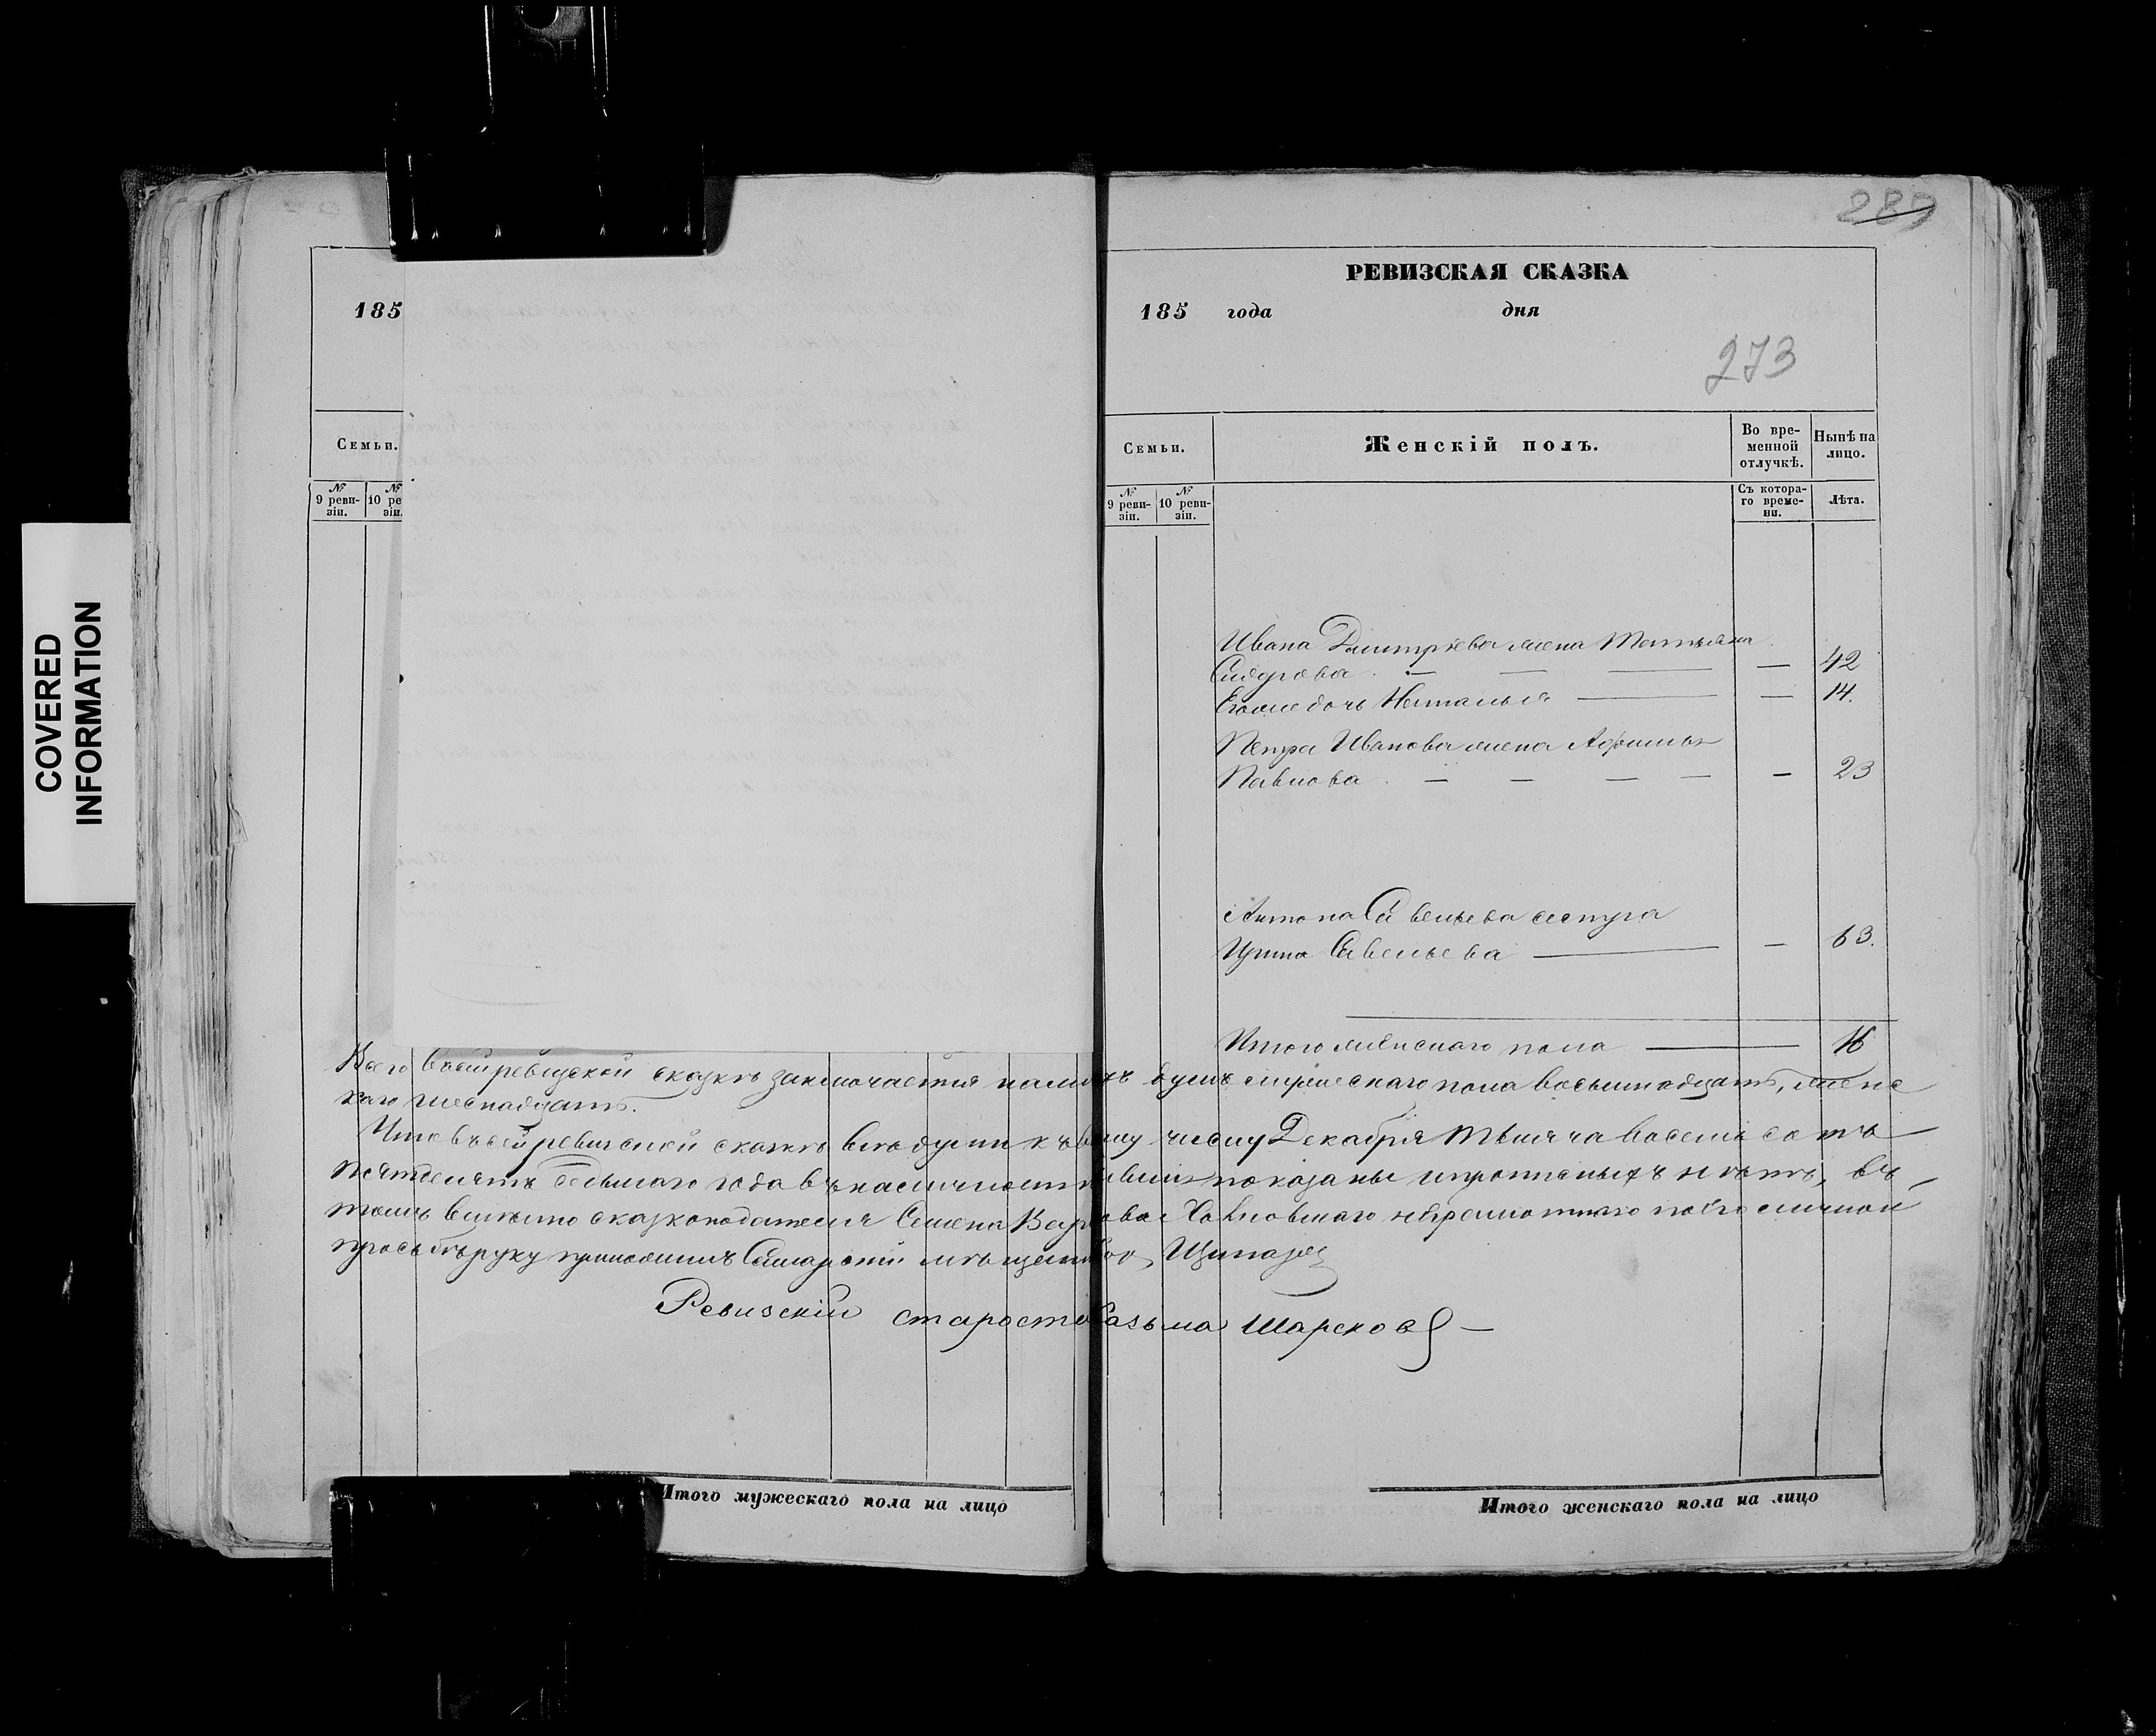 COVERED
INFORMATION
185
Семьи.
№ 9 ревизіи.
№ 10 ре зіи.
289
РЕВИЗСКАЯ СКАЗКА
185 года дня
273
Семьи.
Женскій полъ.
Во временной отлучкѣ.
Нынѣ на лицо.
№ 9 ревизіи.
№ 10 ревизіи.
Съ котораго времени.
Лѣта.
Ивана Дмитріева жена Татьяна
Сидорова — — — — 42
Егоже дочь Наталья — — 14.
Петра Иванова жена Афимья
Павлова — — — — — 23
Антона Савельева сестра
Ирина Савельева — — 63.
Итого женскаго пола — 16
Всего въ сей ревизской сказкѣ заключается налицо душъ мужескаго пола восьмнадцать, женс
каго шеснадцать.
Что въ сей ревизской сказкѣ всѣ души къ числу Декабря тысяча восемь сотъ
пятдесятъ седьмаго года въ наличности показаны и прописныхъ нѣтъ, въ
томъ вмѣсто сказкоподателя Семена неграмотнаго по его личной
прозьбѣ руку приложилъ Самарскій мѣщанинъ
Ревизскій староста Казьма Шарсков
Итого мужескаго пола на лицо
Итого женскаго пола на лицо